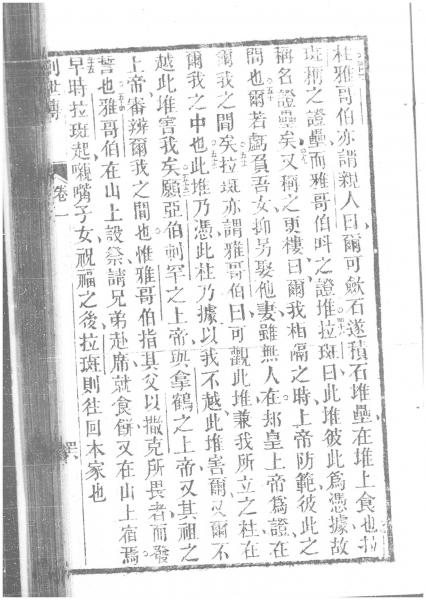 柱雅哥伯亦謂親人曰爾可歛石遂積石堆壘在堆上食也拉
班稱之證壘而雅哥伯呌之證堆拉班曰此堆彼此爲憑據故
稱名證壘矣又稱之更樓曰爾我相隔之時上帝防範彼此之
間也爾若虧負吾女抑另娶他妻雖無人在却皇上帝爲證在
爾我之間矣拉班亦謂雅哥伯曰可觀此堆兼我所立之柱在
爾我之中也此堆乃憑此柱乃據以我不越此堆害爾又爾不
越此堆害我矣願亞伯剌罕之上帝與拿鶴之上帝又其祖之
上帝審辨爾我之間也惟雅哥伯指其父以撒克所畏者而發
誓也雅哥伯在山上設祭請兄弟赴席就食餅又在山上宿焉
早時拉班起嘴子女祝福之後拉班則往回本家也
卷一